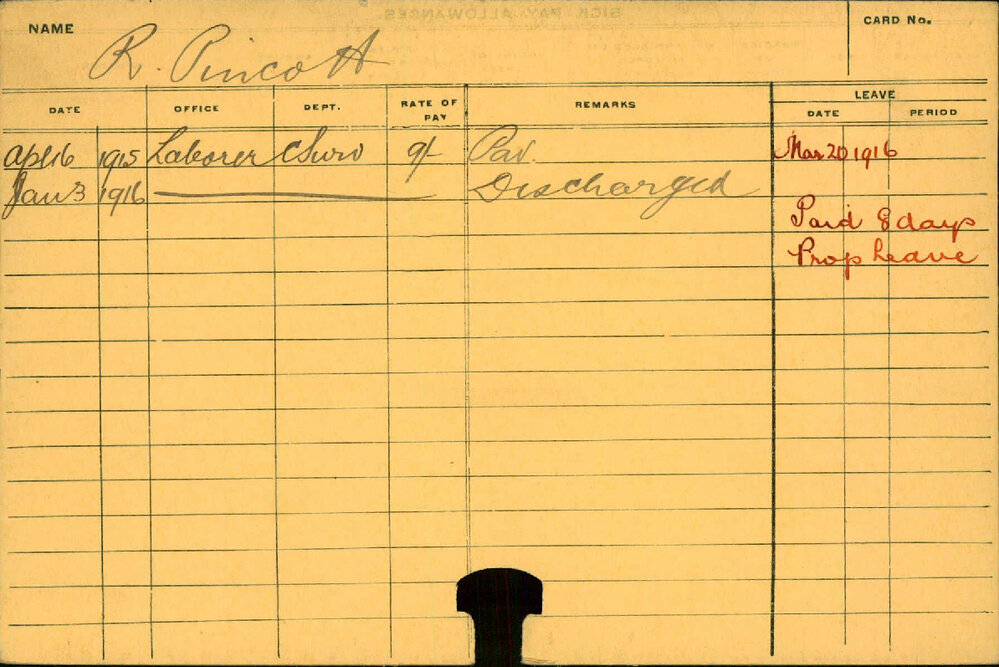 NAME R. Pincott CARD No.
DATE OFFICE DEPT. RATE OF PAY REMARKS LEAVE
DATE PERIOD
Apl 16 1915 Laborer C Surv 9/- Pav. Mar 20 1916
Jan 3 1916 Discharged
Paid 8 days
Prop Leave